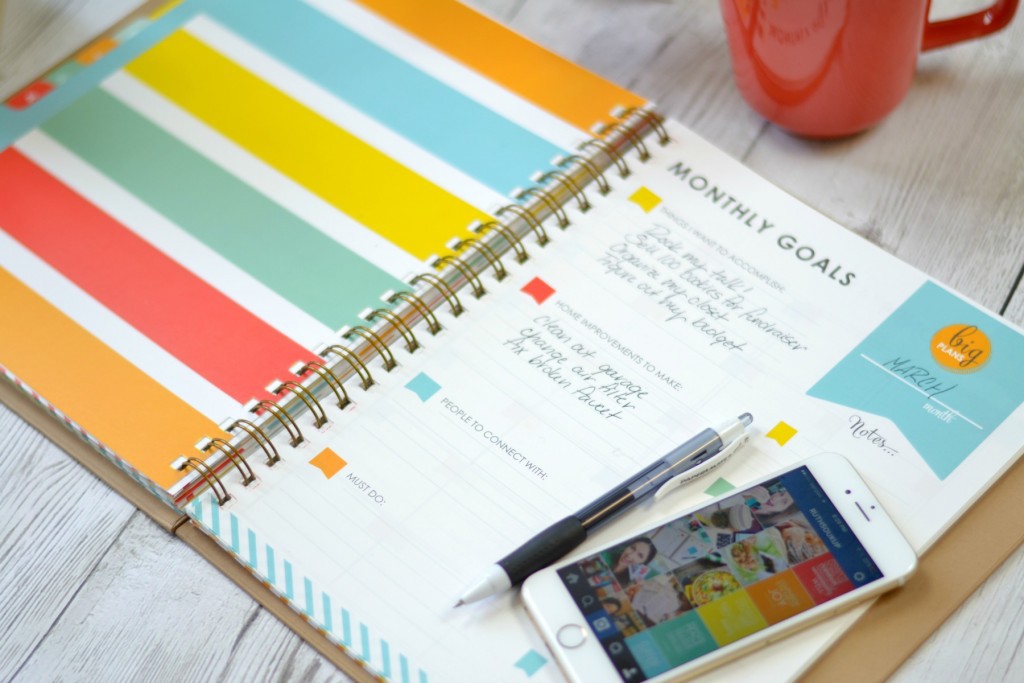 MONTHLY GOALS
THINGS I WANT TO ACCOMPLISH:
Rock my talk!
Sell 100 books for fundraiser
Organize my closet
Figure our my budget
HOME IMPROVEMENTS TO MAKE:
Clean out garage
Change our filter
fix broken faucet
PEOPLE TO CONNECT WITH:
MUST DO:
big
PLANS
MARCH
month
Notes...
RUTHSOUKUP